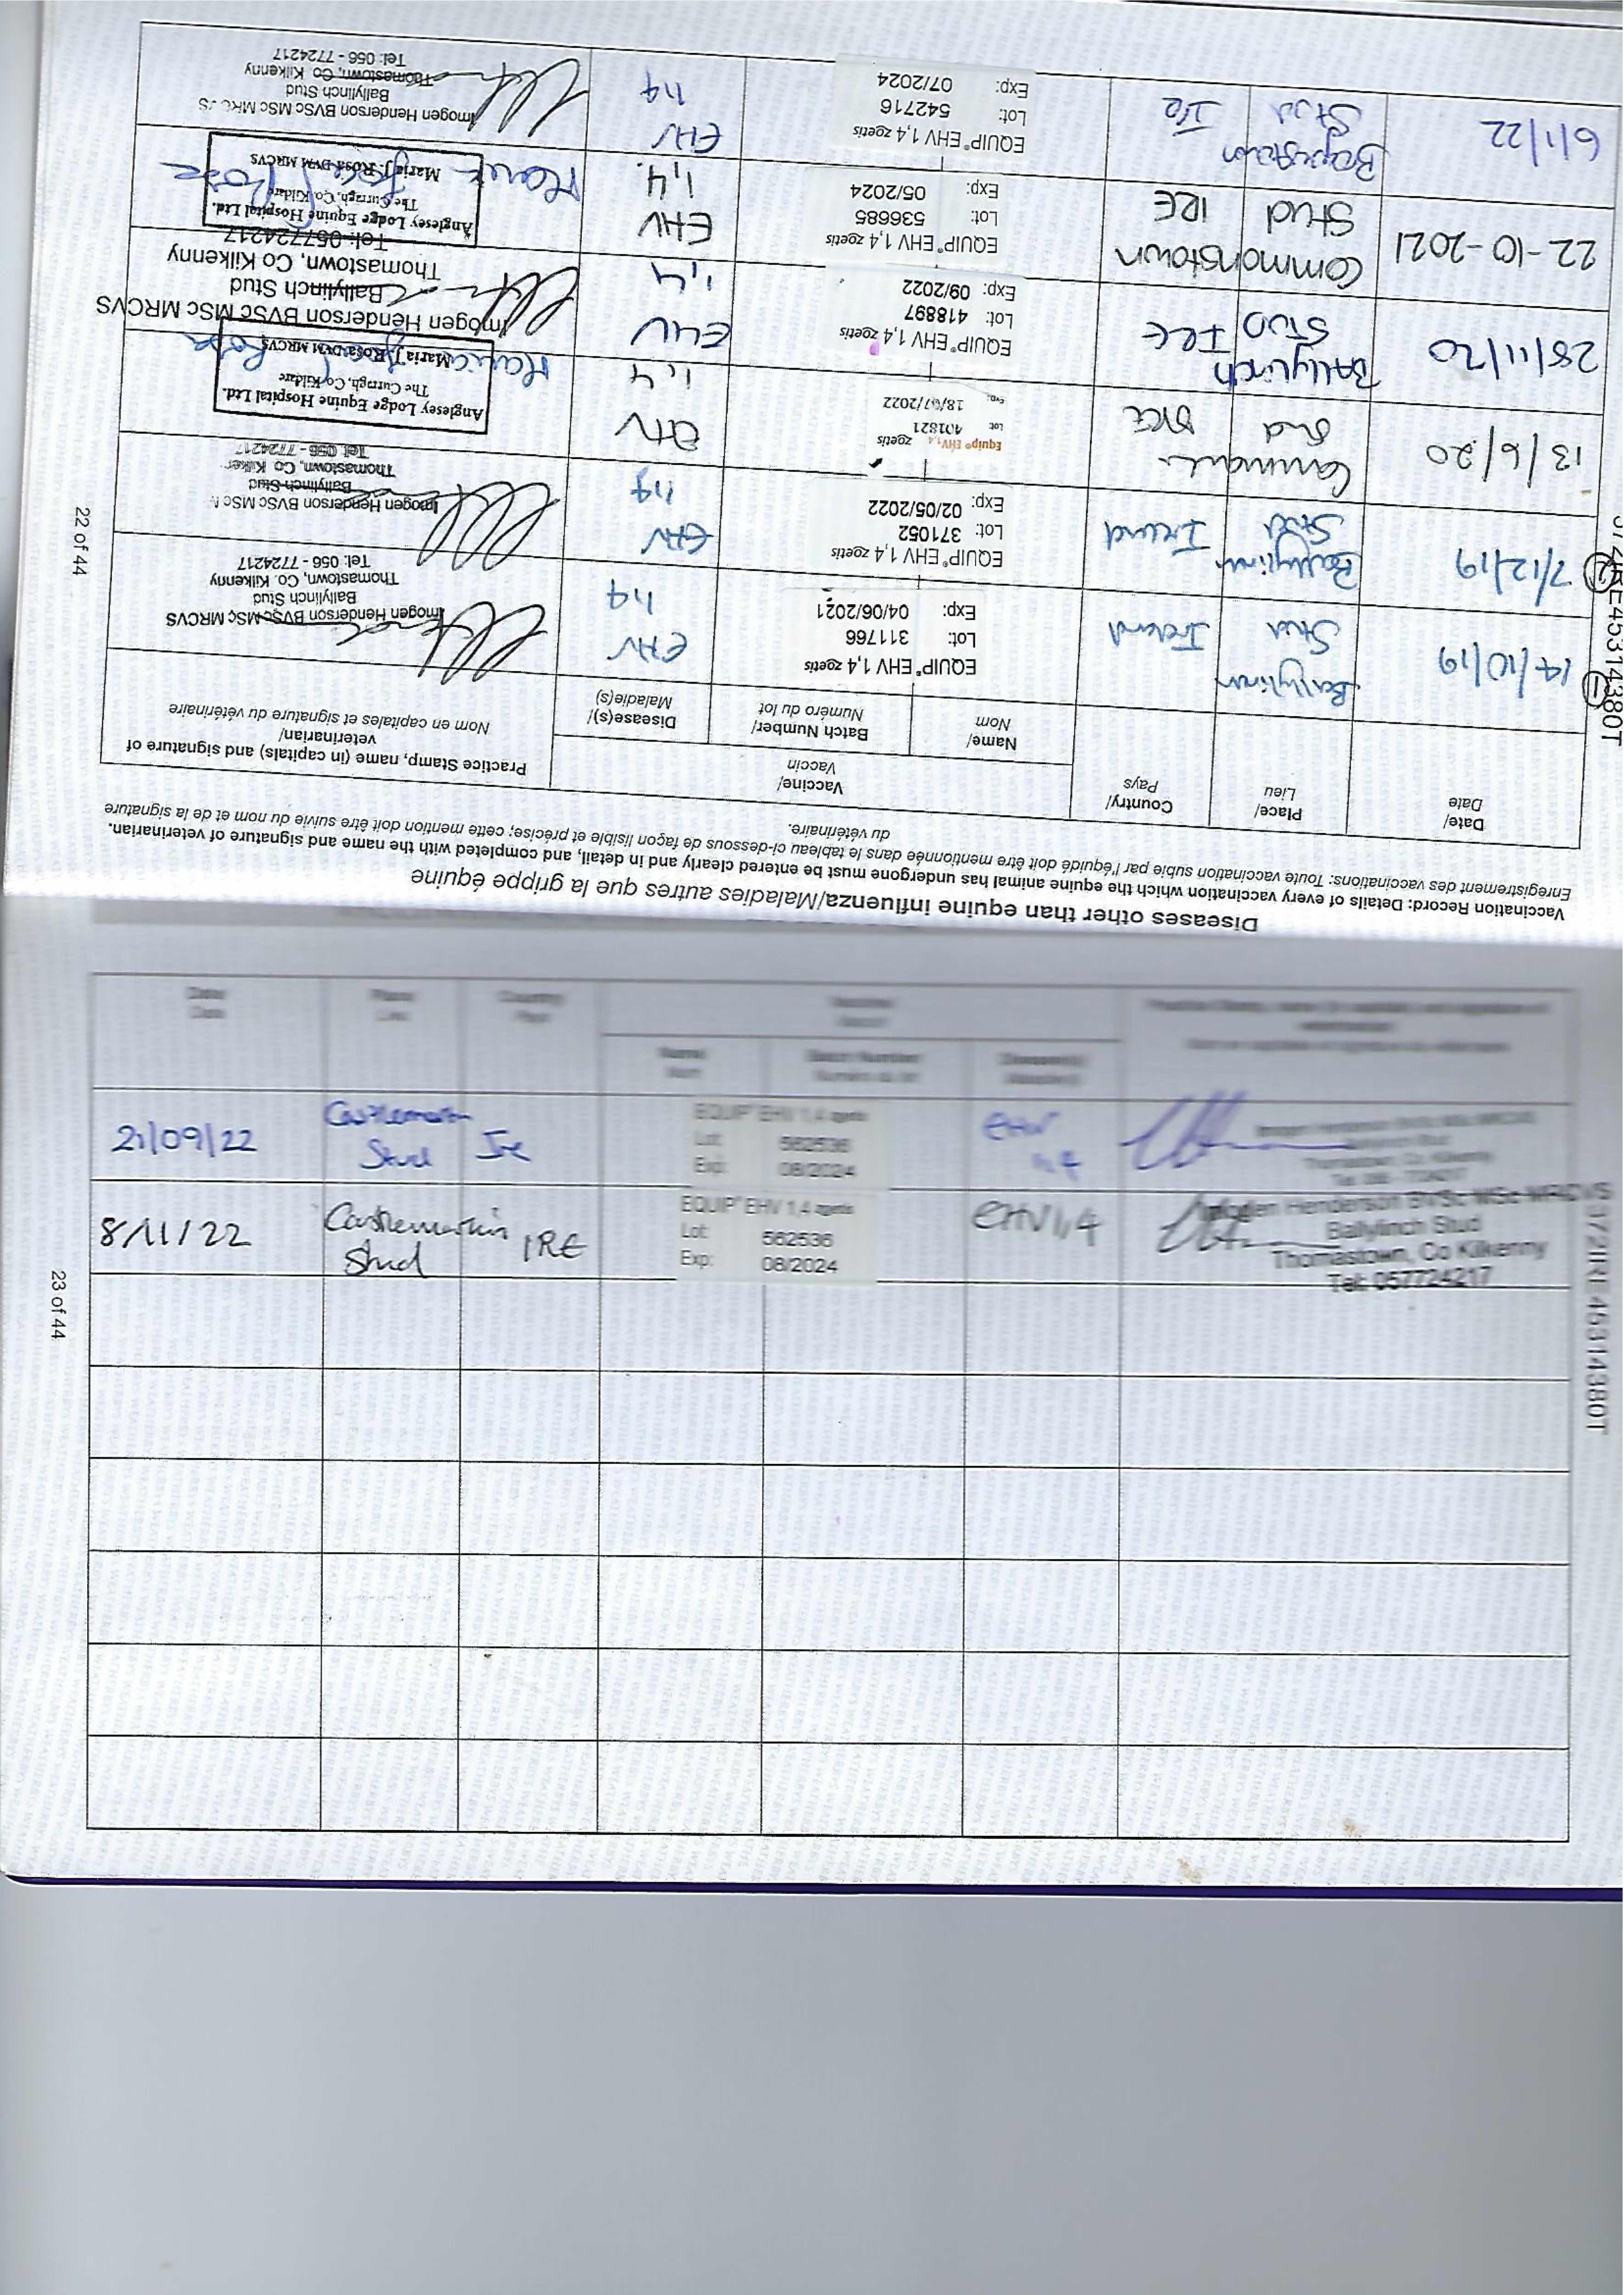 Diseases other than equine influenza/Maladies autres que la grippe équine
Vaccination Record: Details of every vaccination which the equine animal has undergone must be entered clearly and in detail, and completed with the name and signature of veterinarian.
Enregistrement des vaccinations: Toute vaccination subie par l'équidé doit être mentionnée dans le tableau ci-dessous de façon lisible et précise; cette mention doit être suivie du nom et de la signature
du vétérinaire.
Date/
Date
Place/
Lieu
Country/
Pays
Vaccine/
Vaccin
Name/
Nom
Batch Number/
Numéro du lot
Disease(s)/
Maladie(s)
Practice Stamp, name (in capitals) and signature of
veterinarian/
Nom en capitales et signature du vétérinaire
① 14/10/19
Ballylinch
Stud
Ireland
EQUIP® EHV 1,4 zoetis
Lot: 311766
Exp: 04/06/2021
EHV
1,4
Imogen Henderson BVSc MSc MRCVS
Ballylinch Stud
Thomastown, Co. Kilkenny
Tel: 056 - 7724217
② 7/12/19
Ballylinch
Stud
Ireland
EQUIP® EHV 1,4 zoetis
Lot: 371052
Exp: 02/05/2022
EHV
1,4
Imogen Henderson BVSc MSc
Ballylinch Stud
Thomastown, Co
Tel: 056 - 7724217
13/6/20
Stud
IRE
Equip® EHV 1,4 zoetis
Lot 401821
Exp: 18/07/2022
EHV
1,4
Anglesey Lodge Equine Hospital Ltd.
The Curragh, Co. Kildare
Maria J. Rosa DVM MRCVS
28/11/20
BALLylinch
STUD
IRE
EQUIP® EHV 1,4 zoetis
Lot: 418897
Exp: 09/2022
EHV
1,4
Imogen Henderson BVSc MSc MRCVS
Ballylinch Stud
Thomastown, Co Kilkenny
Tel: 057724217
22-10-2021
Commonstown
Stud
IRE
EQUIP® EHV 1,4 zoetis
Lot: 536685
Exp: 05/2024
EHV
1,4
Anglesey Lodge Equine Hospital Ltd.
The Curragh, Co. Kildare
Maria J. Rosa DVM MRCVS
6/1/22
Stud
Ire
EQUIP® EHV 1,4 zoetis
Lot: 542716
Exp: 07/2024
EHV
1,4
Imogen Henderson BVSc MSc
Ballylinch Stud
Thomastown, Co. Kilkenny
Tel: 056 - 7724217
22 of 44
Date
Date
Place
Lieu
Country
Pays
Name
Nom
Batch Number
Numéro du lot
21/09/22
Castlemartin
Stud
Ire
EQUIP® EHV 1,4 zoetis
Lot: 562536
Exp: 08/2024
EHV
1,4
8/11/22
Castlemartin
Stud
IRE
EQUIP® EHV 1,4 zoetis
Lot: 562536
Exp: 08/2024
EHV1,4
Imogen Henderson BVSc MSc MRCVS
Ballylinch Stud
Thomastown, Co Kilkenny
Tel: 057724217
23 of 44